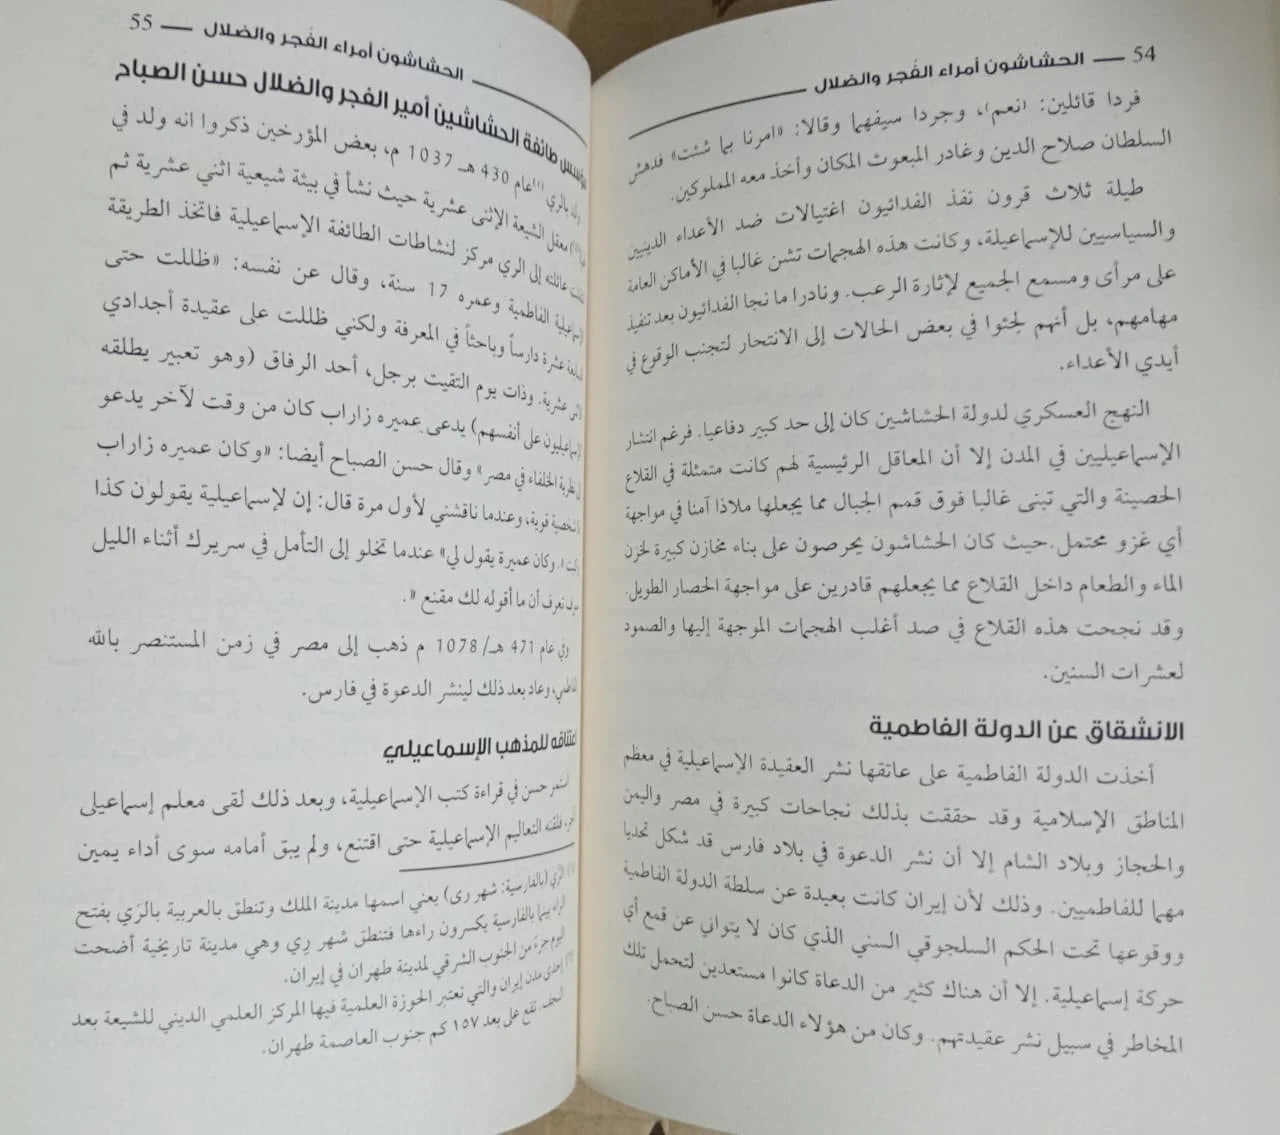 54 — الحشاشون أمراء الفَجر والضلال
فردا قائلين: (نعم)، وجردا سيفهما وقالا: «امرنا بما شئت» فدهش
السلطان صلاح الدين وغادر المبعوث المكان وأخذ معه المملوكين.
طيلة ثلاث قرون نفذ الفدائيون اغتيالات ضد الأعداء الدينيين
والسياسيين للإسماعيلة، وكانت هذه الهجمات تشن غالبا في الأماكن العامة
على مرأى ومسمع الجميع لإثارة الرعب. ونادرا ما نجا الفدائيون بعد تنفيذ
مهامهم، بل أنهم لجئوا في بعض الحالات إلى الانتحار لتجنب الوقوع في
أيدي الأعداء.
النهج العسكري لدولة الحشاشين كان إلى حد كبير دفاعيا. فرغم انتشار
الإسماعيليين في المدن إلا أن المعاقل الرئيسية لهم كانت متمثلة في القلاع
الحصينة والتي تبنى غالبا فوق قمم الجبال مما يجعلها ملاذا آمنا في مواجهة
أي غزو محتمل.حيث كان الحشاشون يحرصون على بناء مخازن كبيرة لخزن
الماء والطعام داخل القلاع مما يجعلهم قادرين على مواجهة الحصار الطويل.
وقد نجحت هذه القلاع في صد أغلب الهجمات الموجهة إليها والصمود
لعشرات السنين.
الانشقاق عن الدولة الفاطمية
أخذت الدولة الفاطمية على عاتقها نشر العقيدة الإسماعيلية في معظم
المناطق الإسلامية وقد حققت بذلك نجاحات كبيرة في مصر واليمن
والحجاز وبلاد الشام إلا أن نشر الدعوة في بلاد فارس قد شكل تحديا
مهما للفاطميين. وذلك لأن إيران كانت بعيدة عن سلطة الدولة الفاطمية
ووقوعها تحت الحكم السلجوقي السني الذي كان لا يتواني عن قمع أي
حركة إسماعيلية. إلا أن هناك كثير من الدعاة كانوا مستعدين لتحمل تلك
المخاطر في سبيل نشر عقيدتهم. وكان من هؤلاء الدعاة حسن الصباح.
الحشاشون أمراء الفَجر والضلال — 55
طائفة الحشاشين أمير الفجر والضلال حسن الصباح
بالري (1)عام 430 هـ 1037 م، بعض المؤرخين ذكروا انه ولد في
معقل الشيعة الإثنى عشرية حيث نشأ في بيئة شيعية اثني عشرية ثم
عائلته إلى الري مركز لنشاطات الطائفة الإسماعيلية فاتخذ الطريقة
الإسماعيلية الفاطمية وعمره 17 سنة، وقال عن نفسه: «ظللت حتى
عشرة دارساً وباحثاً في المعرفة ولكني ظللت على عقيدة أجدادي
عشرية. وذات يوم التقيت برجل، أحد الرفاق (وهو تعبير يطلقه
الإسماعيليون على أنفسهم) يدعى عميره زاراب كان من وقت لآخر يدعو
نظرية الخلفاء في مصر» وقال حسن الصباح أيضا: «وكان عميره زاراب
شخصية قوية، وعندما ناقشني لأول مرة قال: إن لإسماعيلية يقولون كذا
وكان عميرة يقول لي» عندما تخلو إلى التأمل في سريرك أثناء الليل
تعرف أن ما أقوله لك مقنع «.
وفي عام 471 هـ/ 1078 م ذهب إلى مصر في زمن المستنصر بالله
وعاد بعد ذلك لينشر الدعوة في فارس.
اعتناقه للمذهب الإسماعيلي
استمر حسن في قراءة كتب الإسماعيلية، وبعد ذلك لقى معلم إسماعيلى
فلقنه التعاليم الإسماعيلية حتى اقتنع، ولم يبق أمامه سوى أداء يمين
الرَّي (بالفارسية: شهر رى) يعني اسمها مدينة الملك وتنطق بالعربية بالرَي بفتح
الراء بينما بالفارسية يكسرون راءها فتنطق شهر رِي وهي مدينة تاريخية أضحت
اليوم جزءً من الجنوب الشرقي لمدينة طهران في إيران.
إحدى مدن إيران والتي تعتبر الحوزة العلمية فيها المركز العلمي الديني للشيعة بعد
النجف. تقع على بعد ١٥٧ كم جنوب العاصمة طهران.